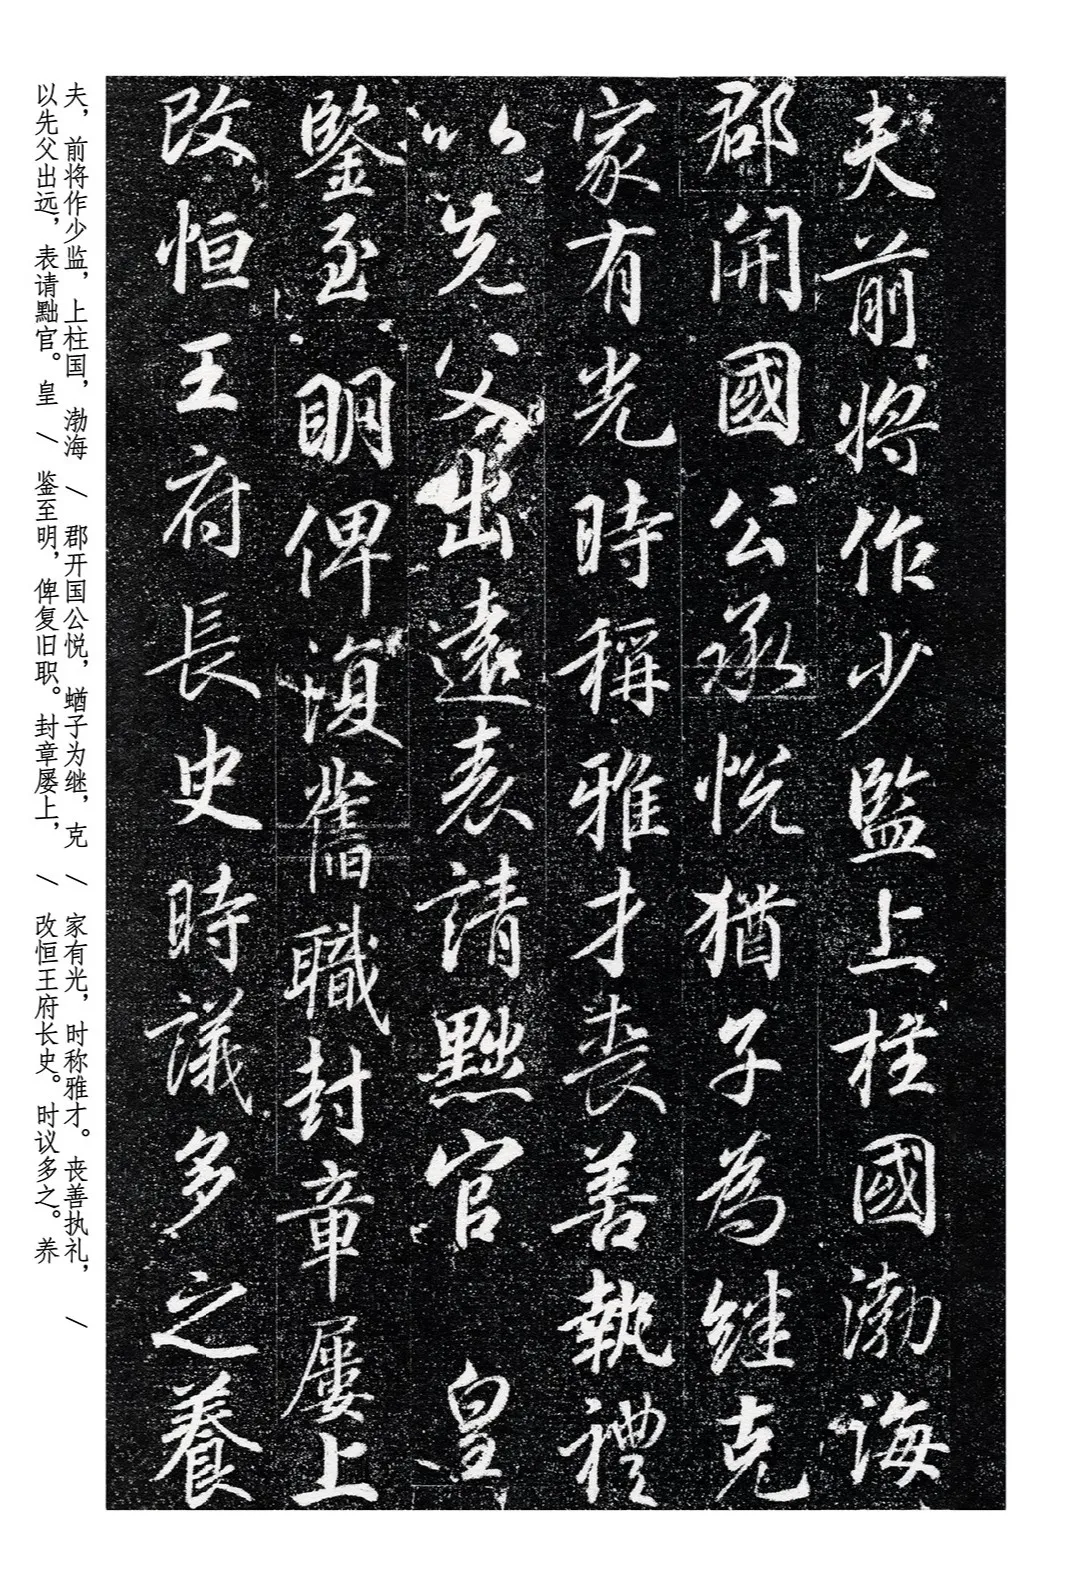 夫前将作少監上柱國渤海
郡開國公承悦猶子為继克
家有光時稱雅才丧善執禮
以先父出遠表請黜官 皇
鑒至明俾復舊職封章屢上
改恒王府長史時議多之養
夫，前将作少监，上柱国，渤海 / 郡开国公悦，蝤子为继，克 / 家有光，时称雅才。丧善执礼， /
以先父出远，表请黜官。皇 / 鉴至明，俾复旧职。封章屡上， / 改恒王府长史。时议多之。养